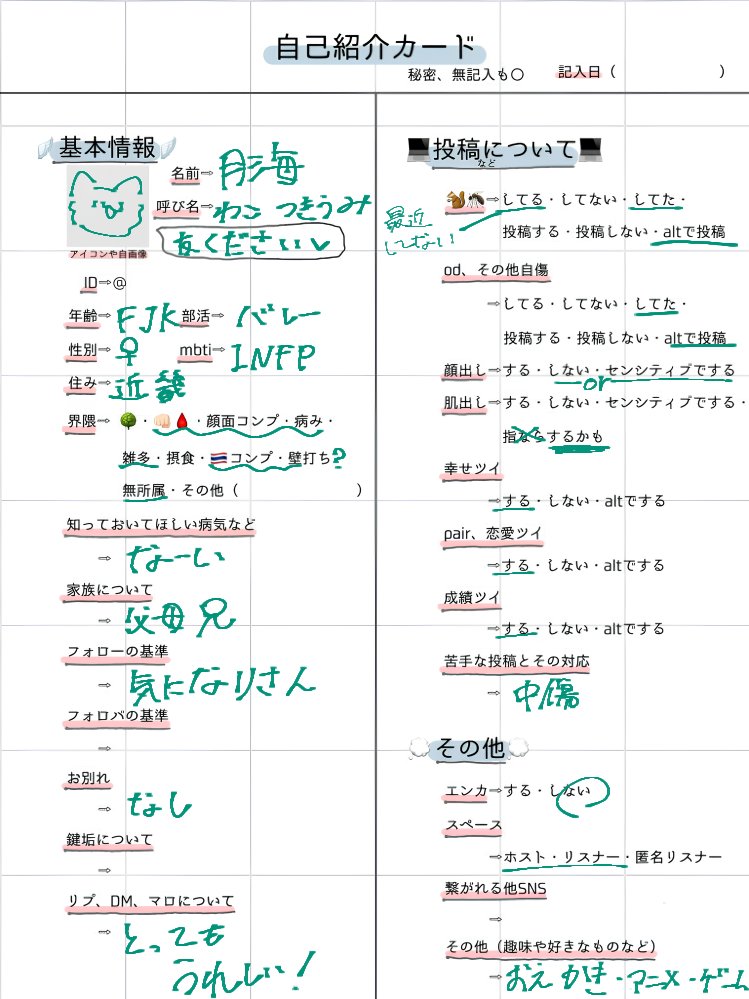 自己紹介カード
秘密、無記入も〇 記入日（ ）
基本情報
名前⇒ 月海
呼び名⇒ わこ つきうみ
友ください
アイコンや自画像
ID⇒@
年齢⇒ FJK 部活⇒ バレー
性別⇒ ♀ mbti⇒ INFP
住み⇒ 近畿
界隈⇒ 🌳・👊🏻🩸・顔面コンプ・病み・
雑多・摂食・🇹🇭コンプ・壁打ち?
無所属・その他（ ）
知っておいてほしい病気など
⇒ なーい
家族について
⇒ 父母兄
フォローの基準
⇒ 気になりさん
フォロバの基準
⇒
お別れ
⇒ なし
鍵垢について
⇒
リプ、DM、マロについて
⇒ とっても
うれしい!
投稿について
など
🐿️🦟⇒してる・してない・してた・
最近
してない
投稿する・投稿しない・altで投稿
od、その他自傷
⇒してる・してない・してた・
投稿する・投稿しない・altで投稿
顔出し⇒する・しない・センシティブでする
or
肌出し⇒する・しない・センシティブでする・
指ならするかも
幸せツイ
⇒する・しない・altでする
pair、恋愛ツイ
⇒する・しない・altでする
成績ツイ
⇒する・しない・altでする
苦手な投稿とその対応
⇒ 中傷
その他
エンカ⇒する・しない
スペース
⇒ホスト・リスナー・匿名リスナー
繋がれる他SNS
⇒
その他（趣味や好きなものなど）
⇒おえかき・アニメ・ゲーム